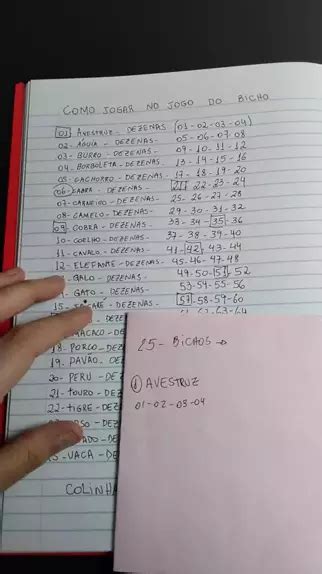 COMO JOGAR NO JOGO DO BICHO
01 AVESTRUZ - DEZENAS (01-02-03-04)
02 - ÁGUIA - DEZENAS - 05-06-07-08
03 - BURRO - DEZENAS - 09-10-11-12
04 - BORBOLETA - DEZENAS - 13-14-15-16
05 - CACHORRO - DEZENAS - 17-18-19-20
06 - CABRA - DEZENAS - 21 22-23-24
07 - CARNEIRO - DEZENAS - 25-26-27-28
08 - CAMELO - DEZENAS - 29-30-31-32
09 - COBRA - DEZENAS - 33-34-35-36
10 - COELHO - DEZENAS - 37-38-39-40
11 - CAVALO - DEZENAS - 41-42-43-44
12 - ELEFANTE - DEZENAS - 45-46-47-48
GALO - DEZENAS - 49-50-51-52
GATO - DEZENAS - 53-54-55-56
15 - DEZENAS - 57-58-59-60
61-62-63-64
MACACO - DEZ
18 - PORCO - DEZ
19 - PAVÃO - DEZ
20 - PERU - DEZ
21 - TOURO - DEZ
22 - TIGRE - DEZ
DEZ
DEZ
25 - VACA - DEZ
COLINHA
25 - BICHOS →
1 AVESTRUZ
01-02-03-04